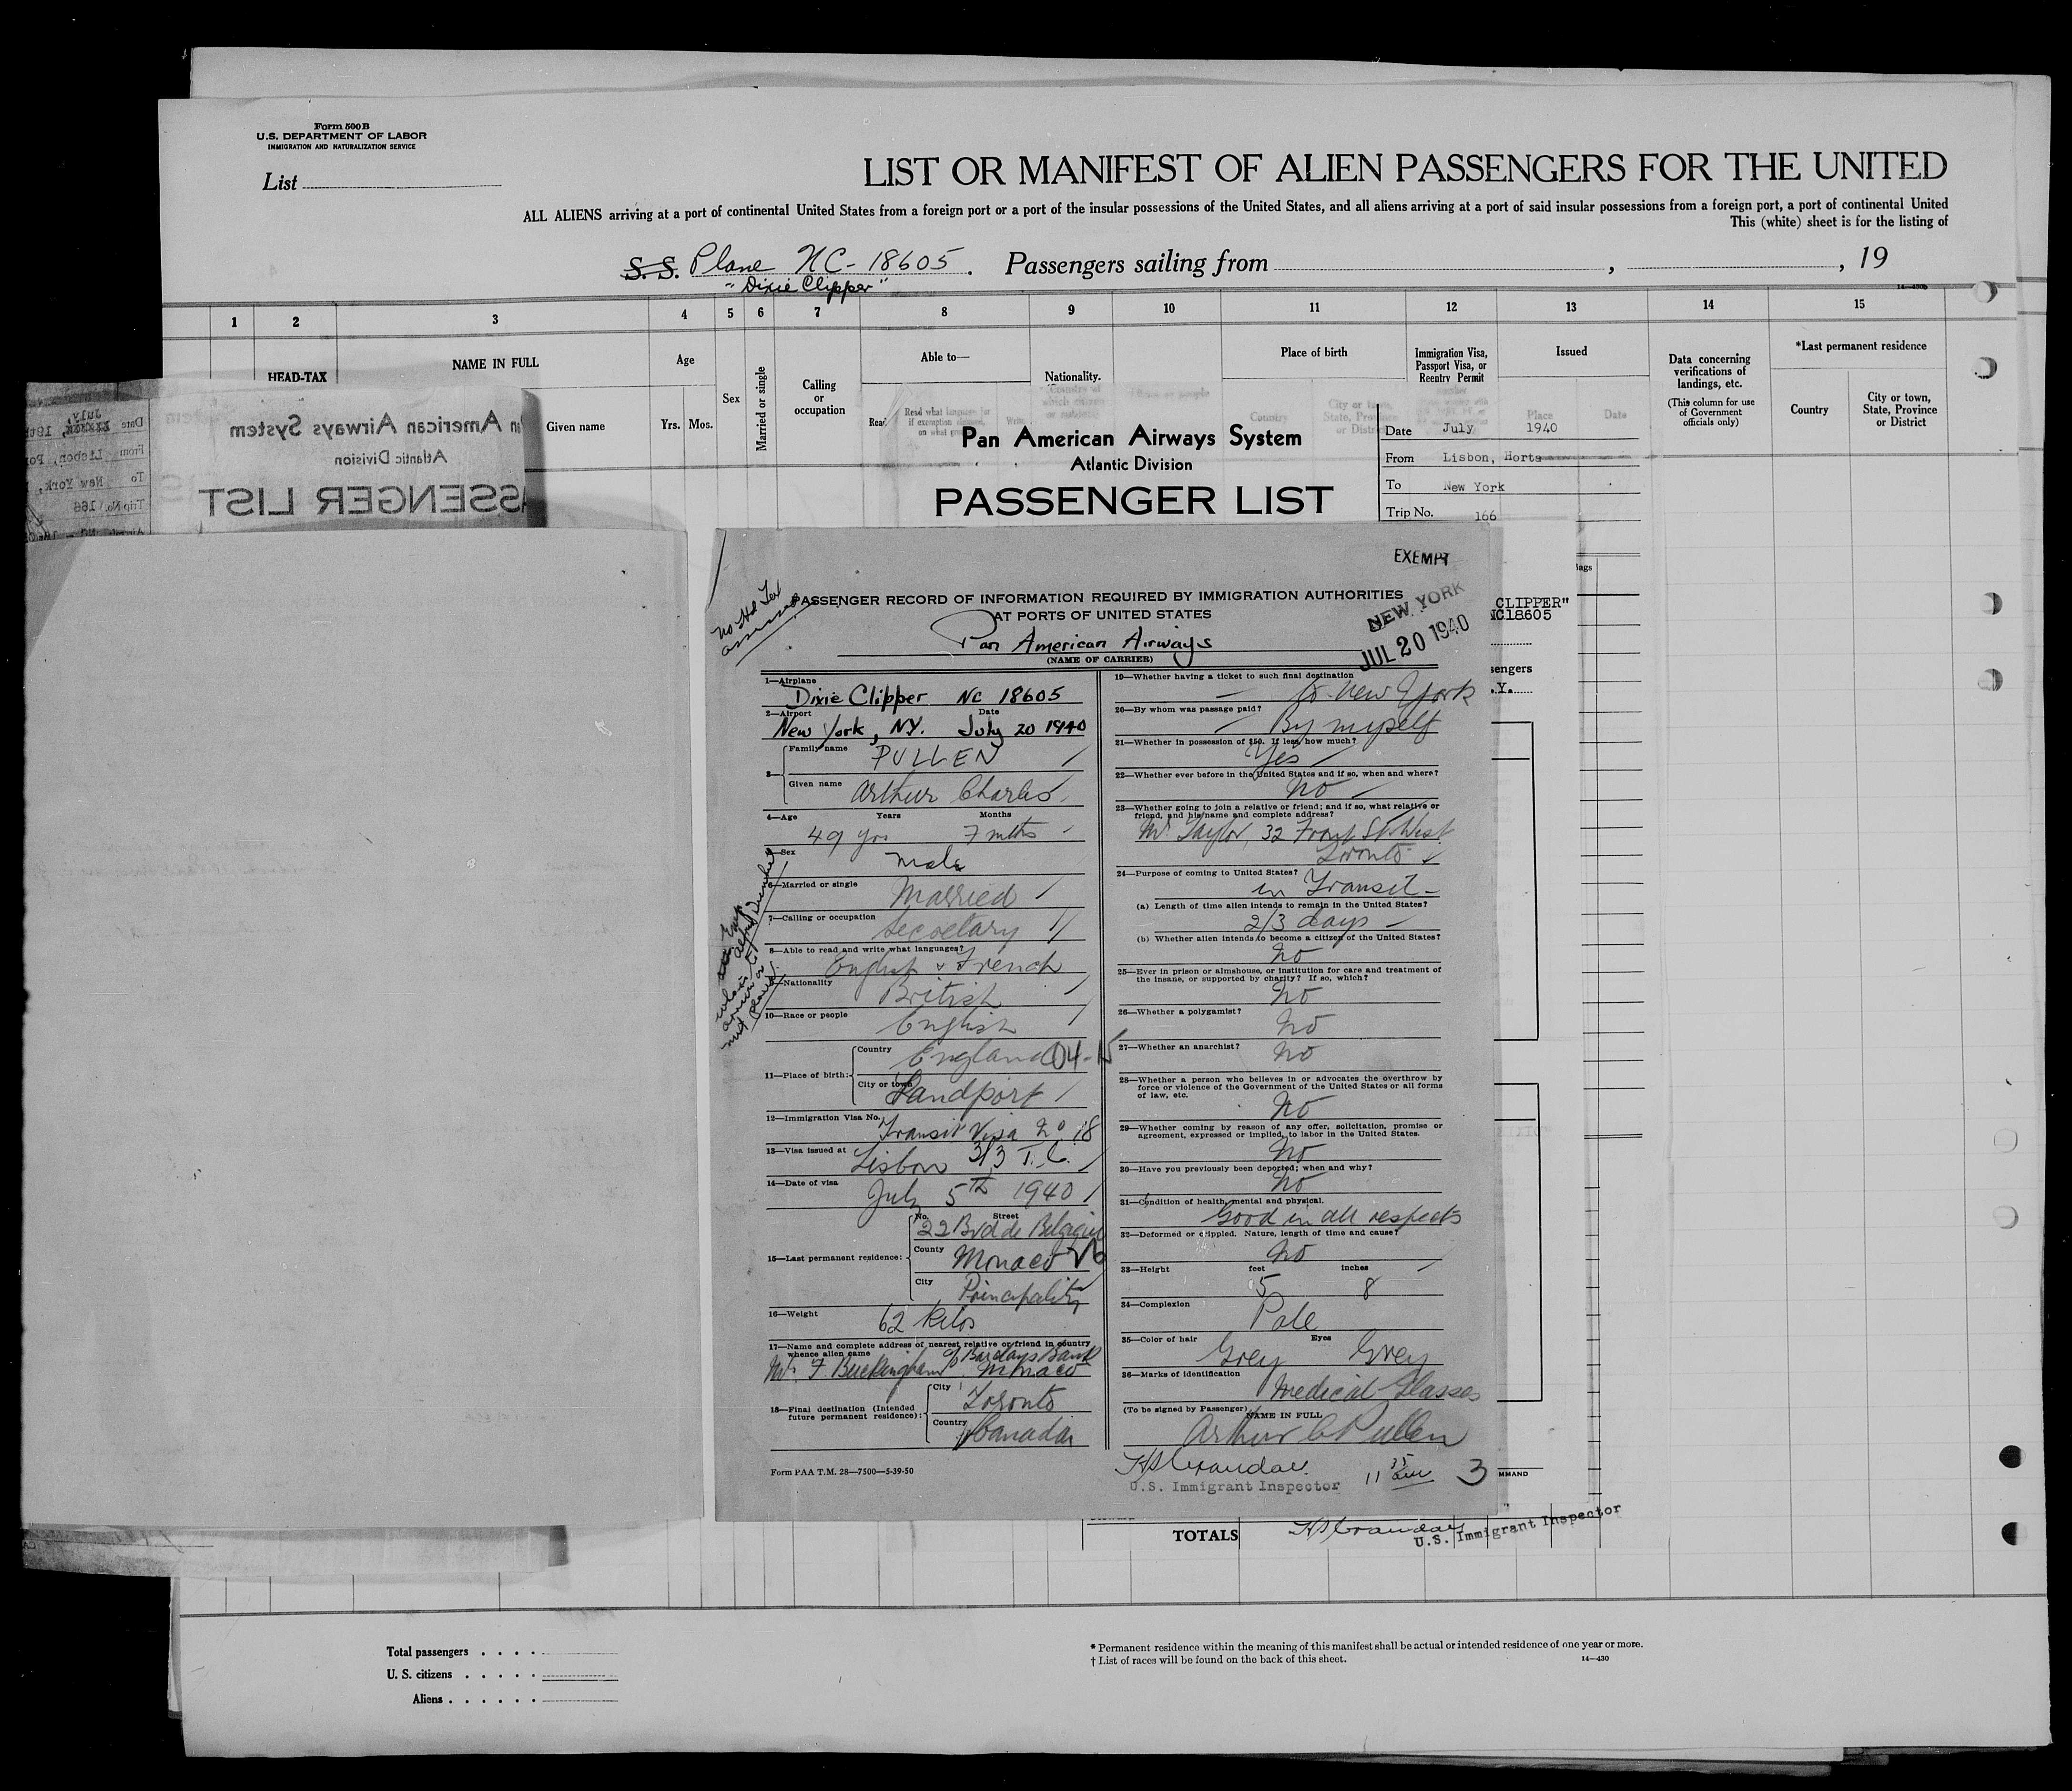 Form 500 B
U.S. DEPARTMENT OF LABOR
IMMIGRATION AND NATURALIZATION SERVICE
List
LIST OR MANIFEST OF ALIEN PASSENGERS FOR THE UNITED
ALL ALIENS arriving at a port of continental United States from a foreign port or a port of the insular possessions of the United States, and all aliens arriving at a port of said insular possessions from a foreign port, a port of continental United
This (white) sheet is for the listing of
S. S. Plane NC-18605. Passengers sailing from , , 19
"Dixie Clipper"
1 2 3 4 5 6 7 8 9 10 11 12 13 14 15
HEAD-TAX
NAME IN FULL
Given name
Age
Yrs. Mos.
Sex
Married or single
Calling
or
occupation
Able to—
Read
Read what language
Write
Nationality.
Place of birth
Country
City or town,
State, Province
or District
Immigration Visa,
Passport Visa, or
Reentry Permit
Issued
Place Date
Data concerning
verifications of
landings, etc.
(This column for use
of Government
officials only)
*Last permanent residence
Country
City or town,
State, Province
or District
American Airways System
Atlantic Division
PASSENGER LIST
Pan American Airways System
Atlantic Division
PASSENGER LIST
Date July 1940
From Lisbon, Horta
To New York
Trip No. 166
CLIPPER"
NC18605
EXEMPT
No Hd Tax
assessed
PASSENGER RECORD OF INFORMATION REQUIRED BY IMMIGRATION AUTHORITIES
AT PORTS OF UNITED STATES
Pan American Airways
(NAME OF CARRIER)
NEW YORK
JUL 20 1940
1—Airplane
Dixie Clipper NC 18605
2—Airport Date
New York, NY. July 20 1940
3— Family name PULLEN
Given name Arthur Charles
4—Age Years Months
49 yrs 7 mths
5—Sex
Male
6—Married or single Married
7—Calling or occupation Secretary
8—Able to read and write what languages?
English & French
9—Nationality British
10—Race or people English
11—Place of birth: Country England 04-
City or town Landport
12—Immigration Visa No. Transit Visa No 18
13—Visa issued at Lisbon 3/3 T.C.
14—Date of visa July 5th 1940
15—Last permanent residence: No. Street
22 Bvd de Belgique
County Monaco
City Principality
16—Weight 62 kilos
17—Name and complete address of nearest relative or friend in country
whence alien came
Mr. F. Buckingham c/o Barclays Bank
Monaco
18—Final destination (Intended
future permanent residence): City Toronto
Country Canada
Form PAA T.M. 28—7500—5-39-50
19—Whether having a ticket to such final destination
to New York
20—By whom was passage paid?
By myself
21—Whether in possession of $50. If less, how much?
Yes
22—Whether ever before in the United States and if so, when and where?
No
23—Whether going to join a relative or friend; and if so, what relative or
friend, and his name and complete address?
Mr. Taylor, 32 Front St. West
Toronto
24—Purpose of coming to United States?
in Transit
(a) Length of time alien intends to remain in the United States?
2/3 days
(b) Whether alien intends to become a citizen of the United States?
No
25—Ever in prison or almshouse, or institution for care and treatment of
the insane, or supported by charity? If so, which?
No
26—Whether a polygamist?
No
27—Whether an anarchist?
No
28—Whether a person who believes in or advocates the overthrow by
force or violence of the Government of the United States or all forms
of law, etc.
No
29—Whether coming by reason of any offer, solicitation, promise or
agreement, expressed or implied, to labor in the United States.
No
30—Have you previously been deported; when and why?
No
31—Condition of health, mental and physical.
Good in all respects
32—Deformed or crippled. Nature, length of time and cause?
No
33—Height feet inches
5 8
34—Complexion
Pale
35—Color of hair Eyes
Grey Grey
36—Marks of identification
Medical Glasses
(To be signed by Passenger) NAME IN FULL
Arthur C Pullen
U.S. Immigrant Inspector
11 35 am 3
MMAND
TOTALS
U.S. Immigrant Inspector
Total passengers
U. S. citizens
Aliens
* Permanent residence within the meaning of this manifest shall be actual or intended residence of one year or more.
† List of races will be found on the back of this sheet.
14—430